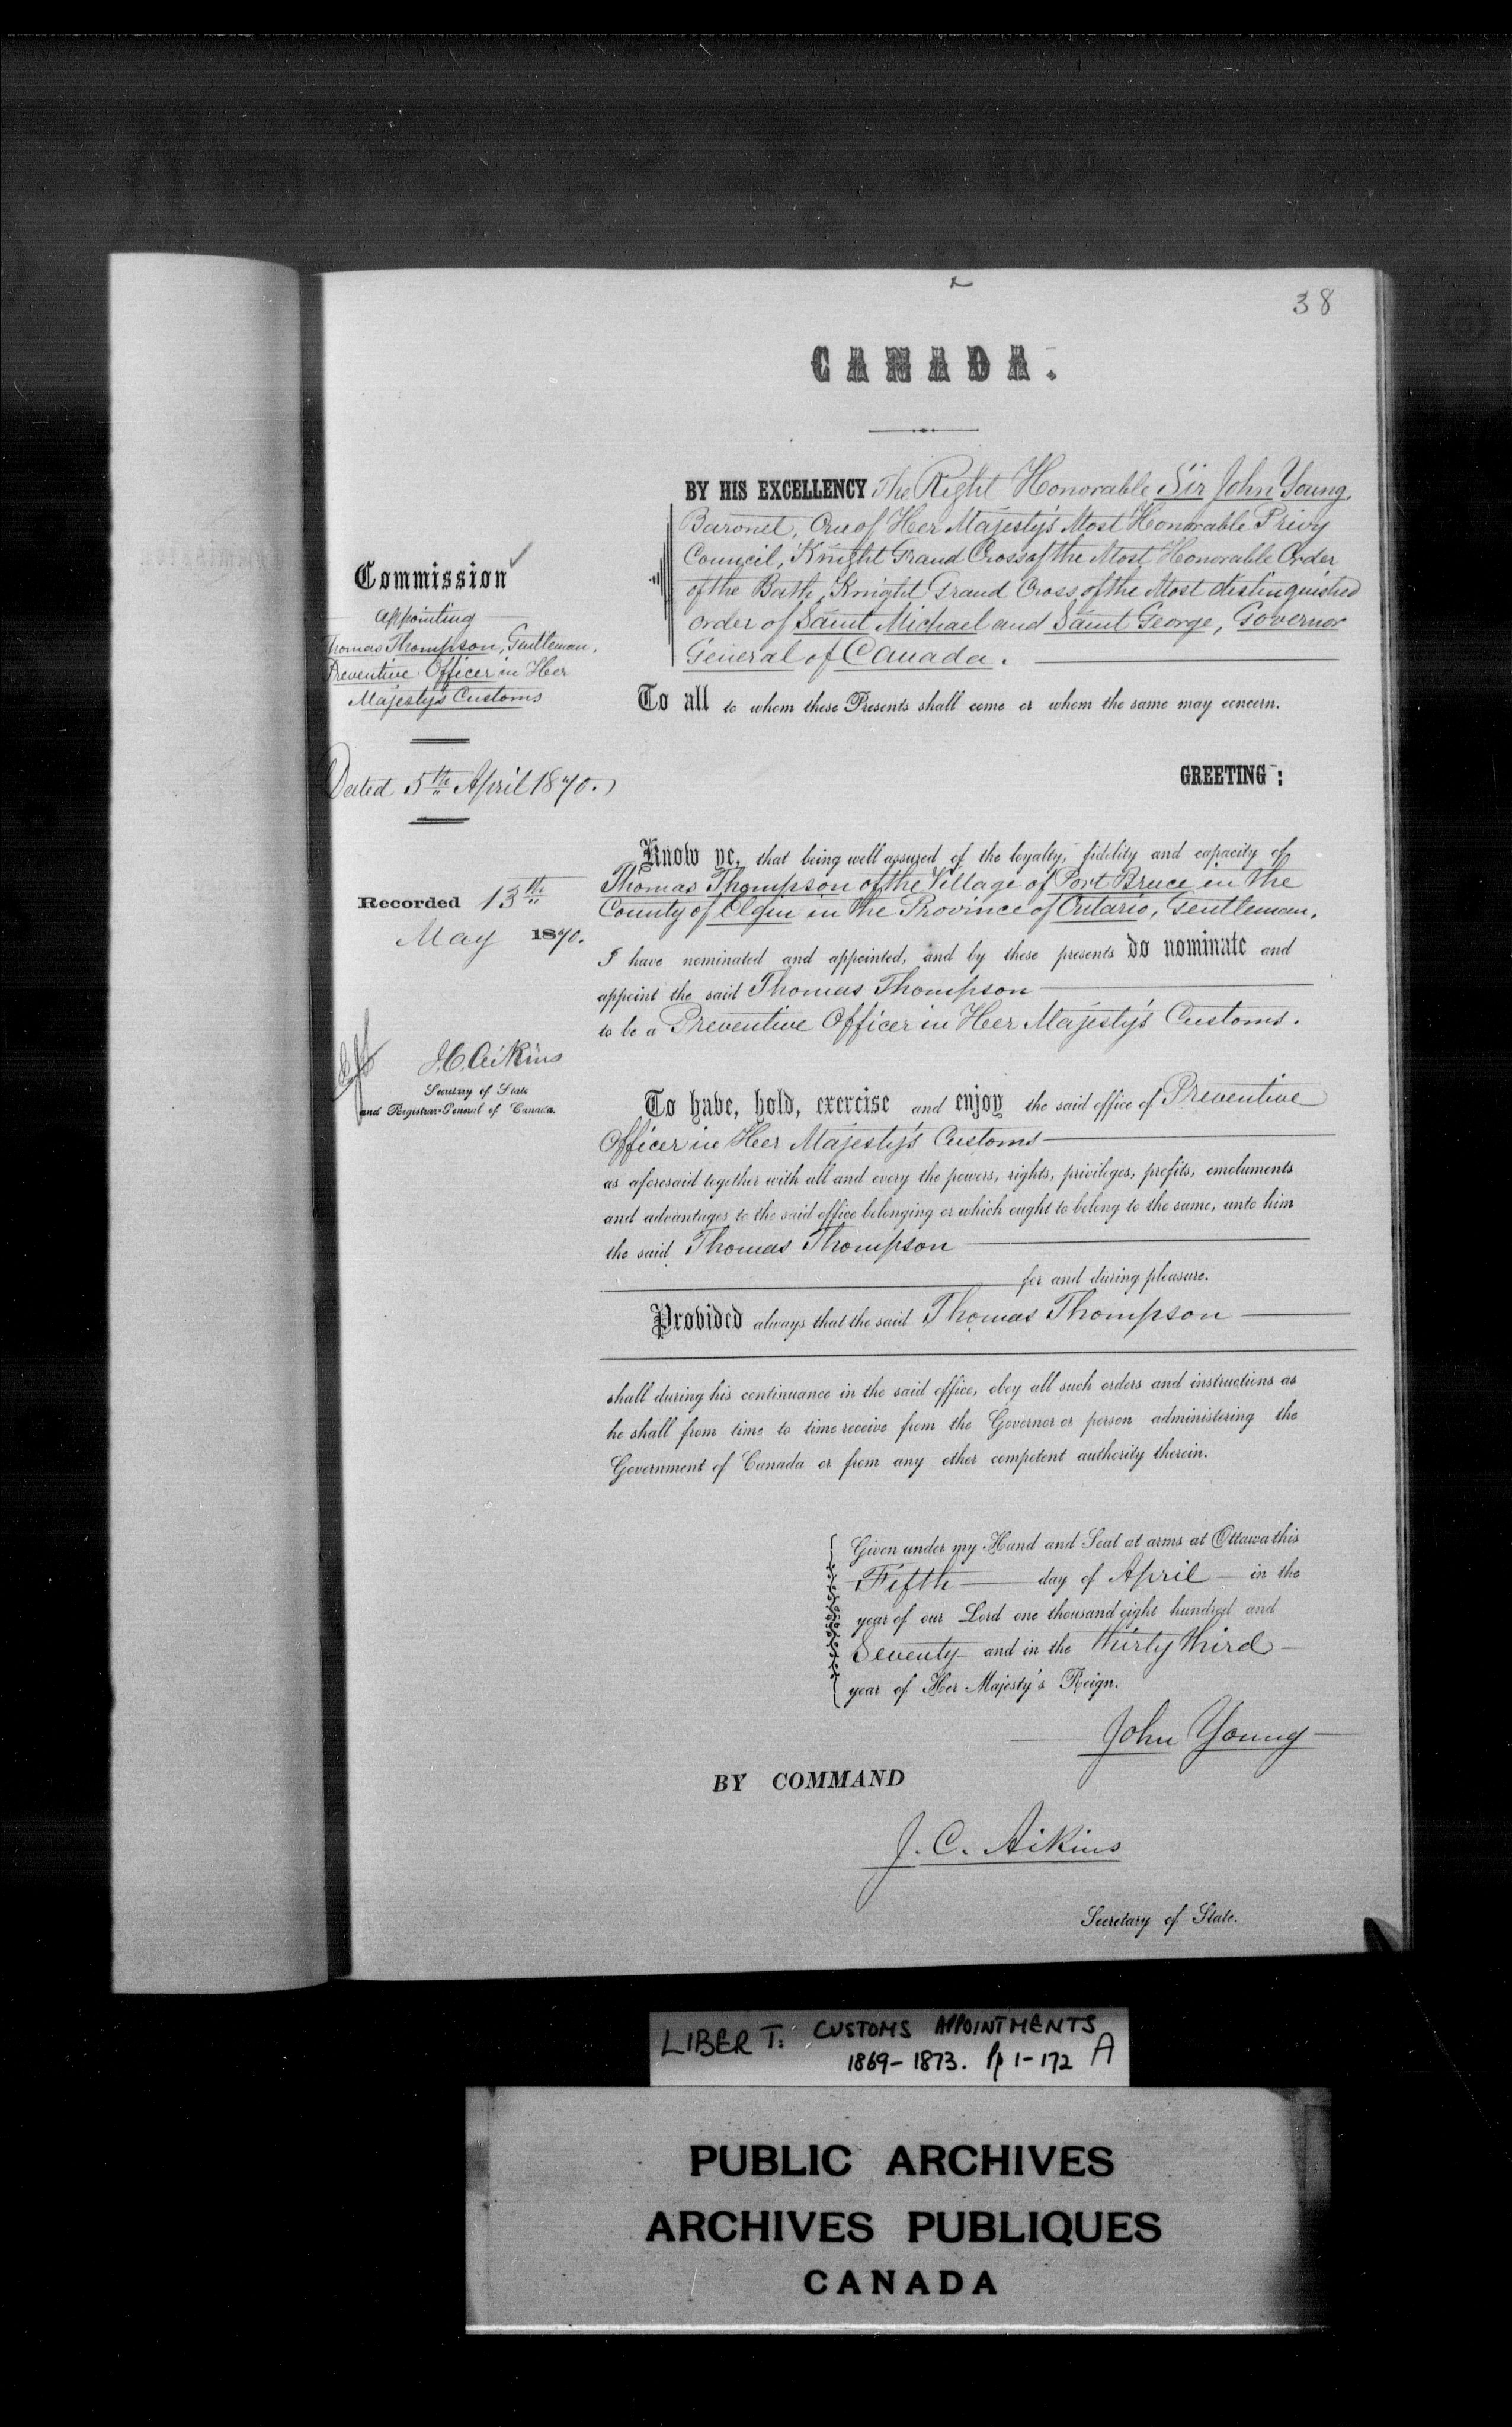 38
CANADA.
Commission
appointing
Thomas Thompson, Gentleman,
Preventive Officer in Her
Majesty's Customs
Dated 5th April 1870.
Recorded 13th
May 1870.
J.C. Aikins
Secretary of State
and Registrar-General of Canada.
BY HIS EXCELLENCY The Right Honorable Sir John Young,
Baronet, One of Her Majesty's Most Honorable Privy
Council, Knight Grand Cross of the Most Honorable Order
of the Bath, Knight Grand Cross of the Most distinguished
order of Saint Michael and Saint George, Governor
General of Canada.
To all to whom these Presents shall come or whom the same may concern.
GREETING:
Know ye, that being well assured of the loyalty, fidelity and capacity of
Thomas Thompson of the Village of Port Bruce in the
County of Elgin in the Province of Ontario, Gentleman,
I have nominated and appointed, and by these presents do nominate and
appoint the said Thomas Thompson
to be a Preventive Officer in Her Majesty's Customs.
To have, hold, exercise and enjoy the said office of Preventive
Officer in Her Majesty's Customs
as aforesaid together with all and every the powers, rights, privileges, profits, emoluments
and advantages to the said office belonging or which ought to belong to the same, unto him
the said Thomas Thompson
for and during pleasure.
Provided always that the said Thomas Thompson
shall during his continuance in the said office, obey all such orders and instructions as
he shall from time to time receive from the Governor or person administering the
Government of Canada or from any other competent authority therein.
Given under my Hand and Seal at arms at Ottawa this
Fifth day of April in the
year of our Lord one thousand eight hundred and
Seventy and in the thirty third
year of Her Majesty's Reign.
John Young
BY COMMAND
J. C. Aikins
Secretary of State.
LIBER T: CUSTOMS APPOINTMENTS
1869-1873. Pp 1-172 A
PUBLIC ARCHIVES
ARCHIVES PUBLIQUES
CANADA